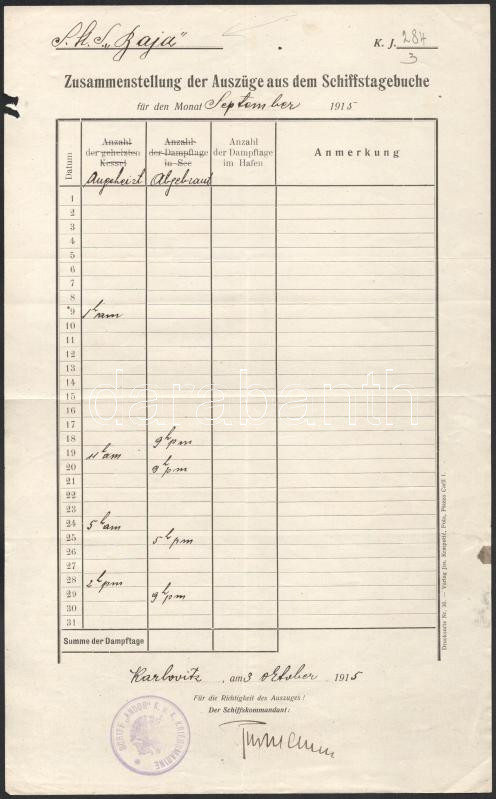 S.M.S. „Baja"
K. J. 284
3
Zusammenstellung der Auszüge aus dem Schiffstagebuche
für den Monat September 1915
Datum
Anzahl der geheizten Kessel
Anzahl der Dampftage in See
Anzahl der Dampftage im Hafen
Anmerkung
Angeheizt Abgebrannt
1
2
3
4
5
6
7
8
9 1 h am
10
11
12
13
14
15
16
17
18 9 h pm
19 4 h am
20 9 h pm
21
22
23
24 5 h am
25 5 h pm
26
27
28 2 h pm
29 9 h pm
30
31
Summe der Dampftage
Karlovitz, am 3 Oktober 1915
Für die Richtigkeit des Auszuges!
Der Schiffskommandant:
SCHIFF „ANDOR" K. u. K. KRIEGS-MARINE
Drucksorte Nr. 30. — Verlag Jos. Krmpotić, Pola, Piazza Carli 1.
darabanth